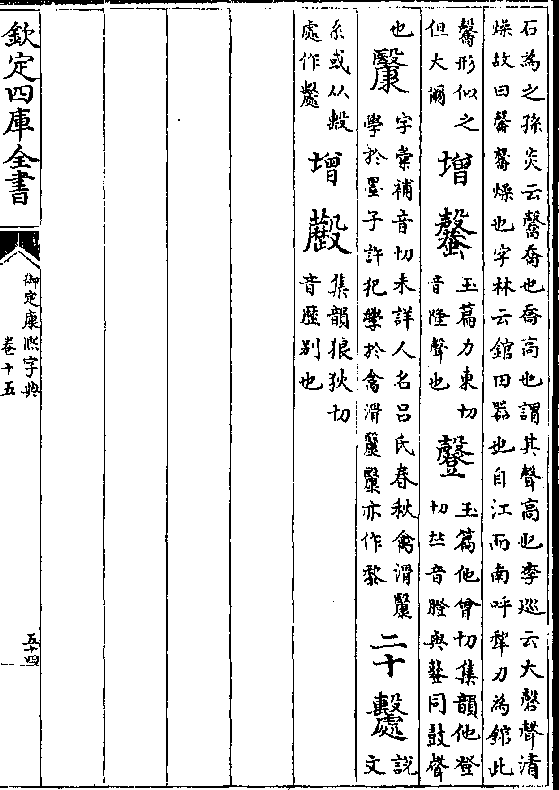 石為之孫炎云毊喬也喬高也謂其聲高也李巡云大磬聲清
燥故曰毊毊燥也字林云錧田器也自江而南呼犂刀為錧此
毊形似之
但大爾
增
玉篇力東切
音隆聲也
玉篇他曾切集韻他登
切𠀤音鼞與鼟同鼓聲
也
字彙補音切未詳人名呂氏春秋禽滑
學於墨子許犯學於禽滑亦作黎
二十
說文
系或从毄
處作
增
集韻狼狄切
音歷別也
欽定四庫全書
御定康熙字典
卷十五
五十四